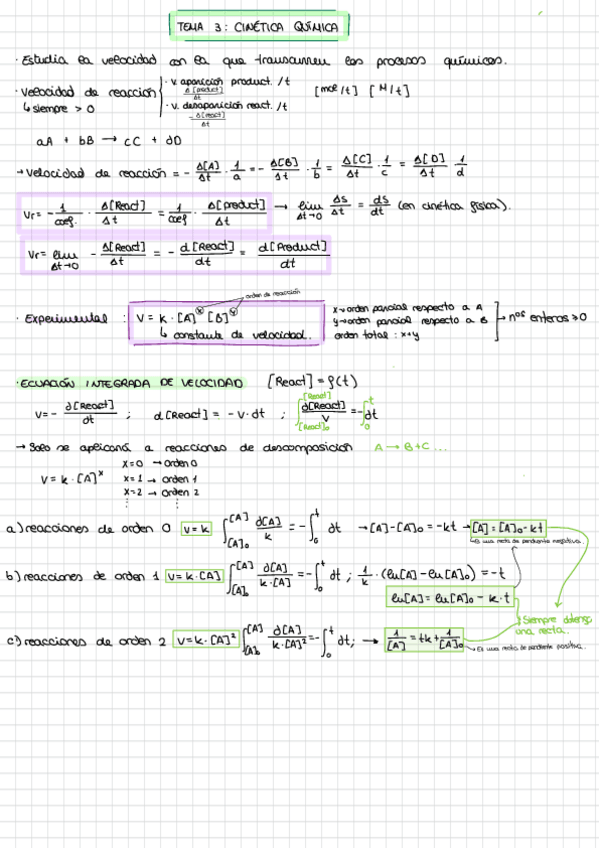 TEMA 3: CINÉTICA QUÍMICA
· Estudia la velocidad con la que transcurren los procesos químicos.
· Velocidad de reacción { · v. aparición product. /t Δ[product]/Δt [mol/t] [M/t]
↳ siempre > 0 · v. desaparición react. /t -Δ[react]/Δt
aA + bB → cC + dD
→ Velocidad de reacción = - Δ[A]/Δt · 1/a = - Δ[B]/Δt · 1/b = Δ[C]/Δt · 1/c = Δ[D]/Δt · 1/d
Vr = - 1/coef. · Δ[React]/Δt = 1/coef · Δ[product]/Δt → lim Δt→0 Δs/Δt = ds/dt (en cinética física).
Vr = lim Δt→0 - Δ[React]/Δt = - d[React]/dt = d[Product]/dt
orden de reacción
· Experimental : V = k · [A]^x [B]^y
↳ constante de velocidad.
x → orden parcial respecto a A
y → orden parcial respecto a B → nºs enteros > 0
orden total : x+y
· ECUACIÓN INTEGRADA DE VELOCIDAD [React] = f(t)
V = - d[React]/dt ; d[React] = - v · dt ; ∫ [React]₀ [React] d[React]/V = - ∫ 0 t dt
→ Solo se aplicará a reacciones de descomposición A → B + C ...
V = k · [A]^x
x = 0 → orden 0
x = 1 → orden 1
x = 2 → orden 2
a) reacciones de orden 0 V = k ∫ [A]₀ [A] d[A]/k = - ∫ 0 t dt → [A] - [A]₀ = - kt → [A] = [A]₀ - kt
↳ Es una recta de pendiente negativa.
b) reacciones de orden 1 V = k · [A] ∫ [A]₀ [A] d[A]/k·[A] = - ∫ 0 t dt ; 1/k · (ln[A] - ln[A]₀) = - t
ln[A] = ln[A]₀ - k · t
Siempre
una recta.
c) reacciones de orden 2 V = k · [A]² ∫ [A]₀ [A] d[A]/k·[A]² = - ∫ 0 t dt ; → 1/[A] = tk + 1/[A]₀
↳ Es una recta de pendiente positiva.